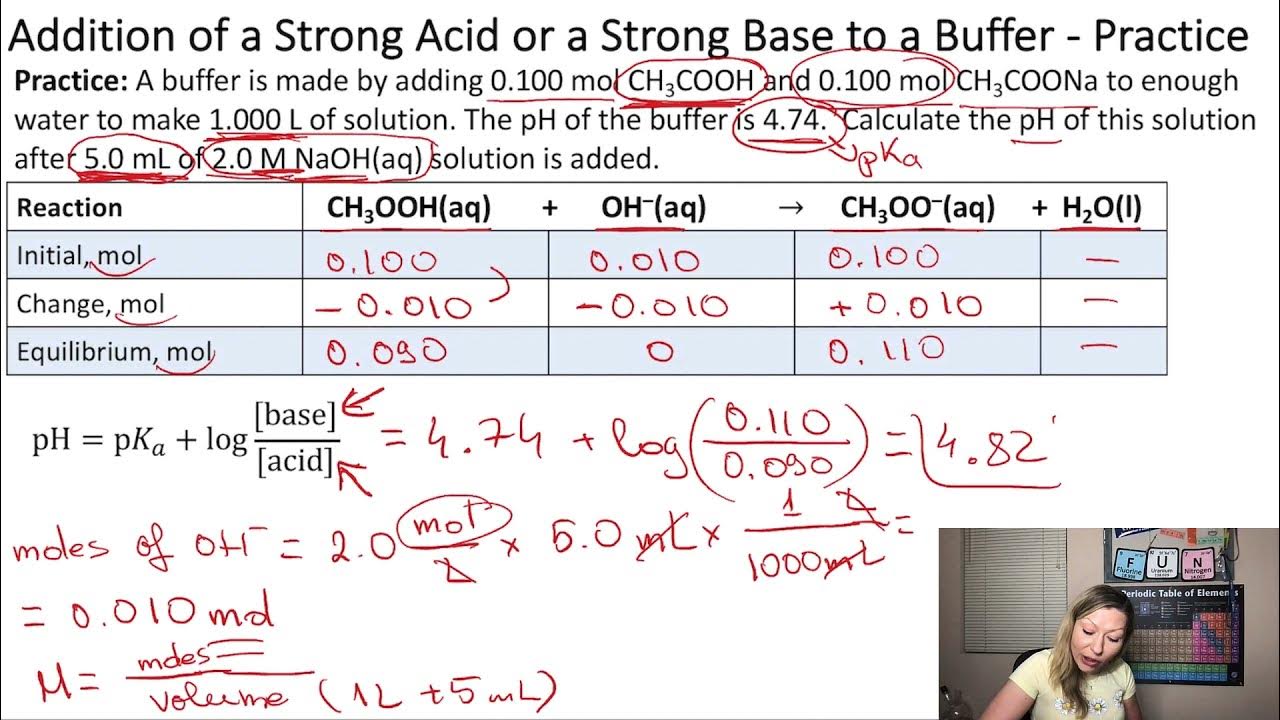 Addition of a Strong Acid or a Strong Base to a Buffer - Practice
Practice: A buffer is made by adding 0.100 mol CH₃COOH and 0.100 mol CH₃COONa to enough
water to make 1.000 L of solution. The pH of the buffer is 4.74. Calculate the pH of this solution
after 5.0 mL of 2.0 M NaOH(aq) solution is added.
pKa
Reaction CH₃OOH(aq) + OH⁻(aq) → CH₃OO⁻(aq) + H₂O(l)
Initial, mol 0.100 0.010 0.100 —
Change, mol – 0.010 – 0.010 + 0.010 —
Equilibrium, mol 0.090 0 0.110 —
pH = pKₐ + log [base]/[acid] = 4.74 + log(0.110/0.090) = 4.82
moles of OH⁻ = 2.0 mol/L × 5.0 mL × 1 L/1000 mL =
= 0.010 mol
M = moles/volume (1L + 5mL)
F U N
Fluorine Uranium Nitrogen
Periodic Table of Elements